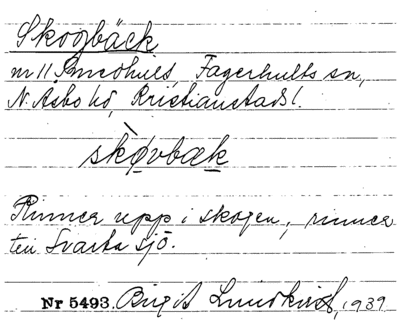 Skogbäck
nr 11 Smedhult, Fagerhults sn,
N. Åsbo hd, Kristianstads l.
skǫvbæk
Rinner upp i skogen, rinner
till Svarta sjö.
Nr 5493. Birgit Lundkvist, 1939